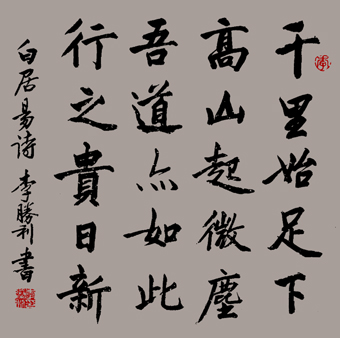 千里始足下
高山起微塵
吾道亦如此
行之貴日新
白居易诗 李勝利書